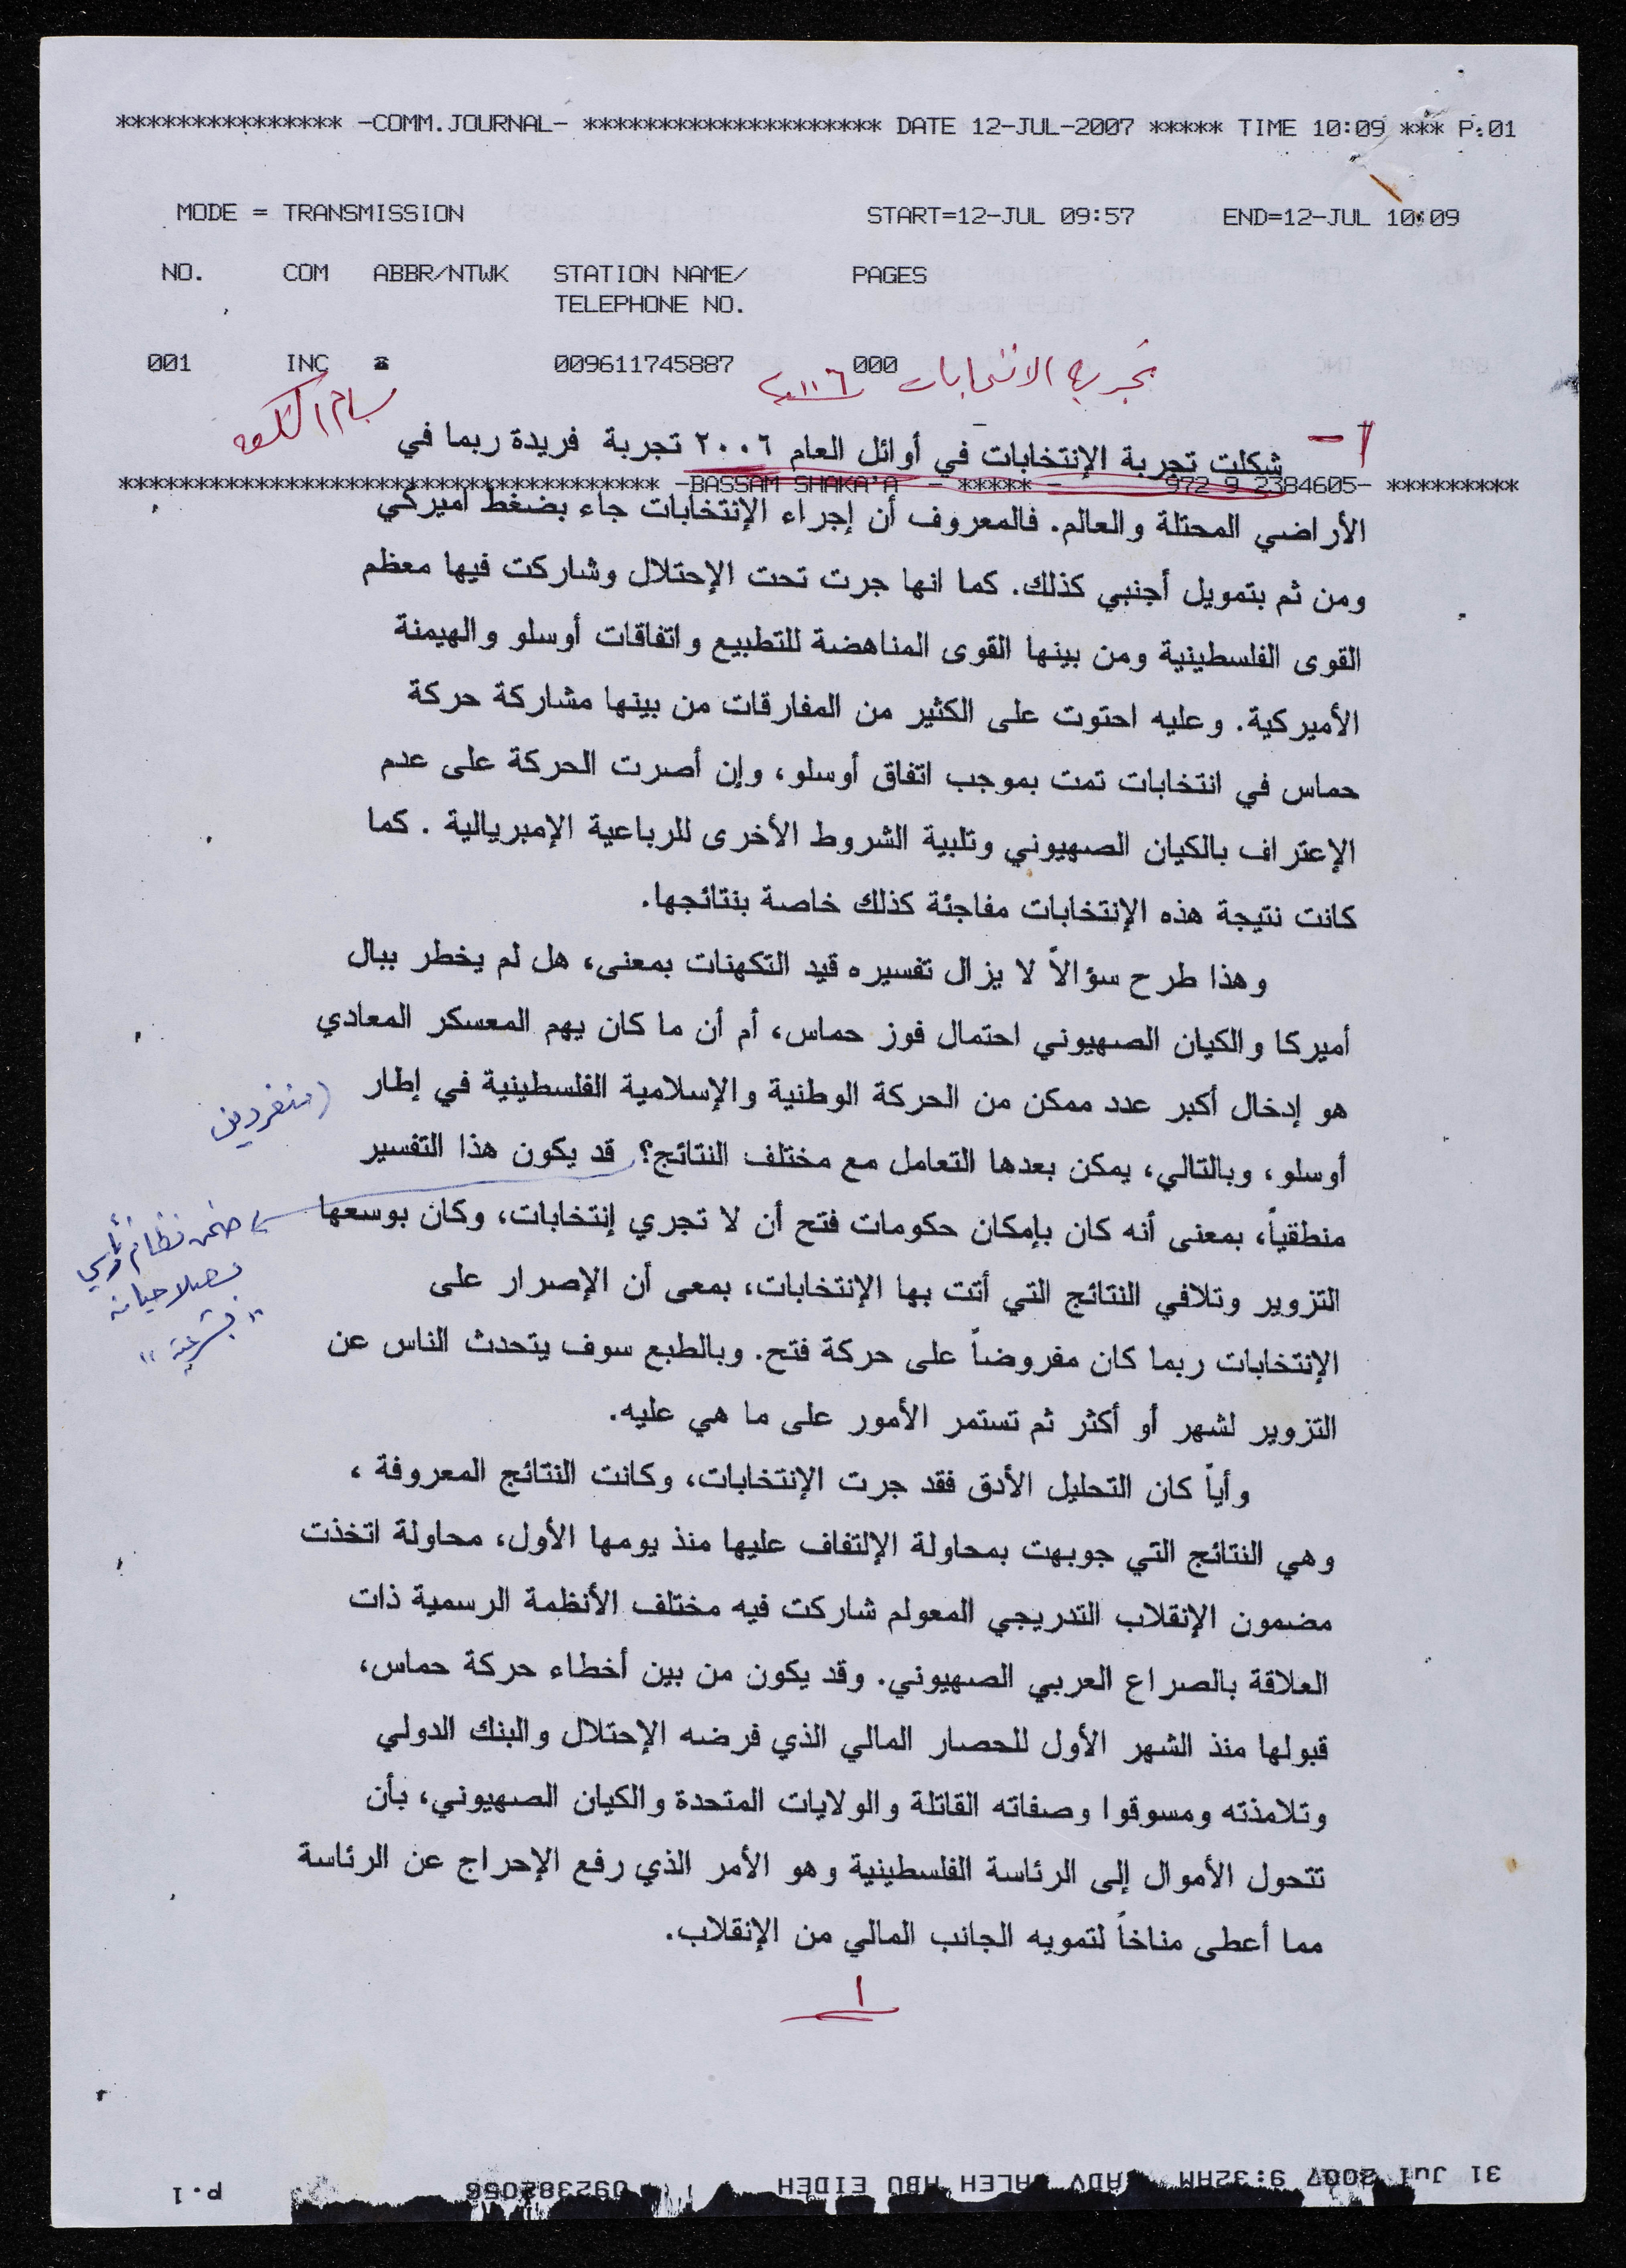 *************** -COMM.JOURNAL- ******************** DATE 12-JUL-2007 ***** TIME 10:09 *** P.01
MODE = TRANSMISSION START=12-JUL 09:57 END=12-JUL 10:09
NO. COM ABBR/NTWK STATION NAME/ PAGES
TELEPHONE NO.
001 INC ☎ 009611745887 000
تجربة الانتخابات ٢٠٠٦
بسام الشكعة
١-
شكلت تجربة الإنتخابات في أوائل العام ٢٠٠٦ تجربة فريدة ربما في
************************************ -BASSAM SHAKA'A - ***** - 972 9 2384605- *********
الأراضي المحتلة والعالم. فالمعروف أن إجراء الإنتخابات جاء بضغط أميركي
ومن ثم بتمويل أجنبي كذلك. كما انها جرت تحت الإحتلال وشاركت فيها معظم
القوى الفلسطينية ومن بينها القوى المناهضة للتطبيع واتفاقات أوسلو والهيمنة
الأميركية. وعليه احتوت على الكثير من المفارقات من بينها مشاركة حركة
حماس في انتخابات تمت بموجب اتفاق أوسلو، وإن أصرت الحركة على عدم
الإعتراف بالكيان الصهيوني وتلبية الشروط الأخرى للرباعية الإمبريالية . كما
كانت نتيجة هذه الإنتخابات مفاجئة كذلك خاصة بنتائجها.
وهذا طرح سؤالاً لا يزال تفسيره قيد التكهنات بمعنى، هل لم يخطر ببال
أميركا والكيان الصهيوني احتمال فوز حماس، أم أن ما كان يهم المعسكر المعادي
هو إدخال أكبر عدد ممكن من الحركة الوطنية والإسلامية الفلسطينية في إطار
(منفردين
أوسلو، وبالتالي، يمكن بعدها التعامل مع مختلف النتائج؟ قد يكون هذا التفسير
ضمن نظام رئاسي
بصلاحياته
منطقياً، بمعنى أنه كان بإمكان حكومات فتح أن لا تجري إنتخابات، وكان بوسعها
التزوير وتلافي النتائج التي أتت بها الإنتخابات، بمعى أن الإصرار على
الإنتخابات ربما كان مفروضاً على حركة فتح. وبالطبع سوف يتحدث الناس عن
التزوير لشهر أو أكثر ثم تستمر الأمور على ما هي عليه.
وأياً كان التحليل الأدق فقد جرت الإنتخابات، وكانت النتائج المعروفة ،
وهي النتائج التي جوبهت بمحاولة الإلتفاف عليها منذ يومها الأول، محاولة اتخذت
مضمون الإنقلاب التدريجي المعولم شاركت فيه مختلف الأنظمة الرسمية ذات
العلاقة بالصراع العربي الصهيوني. وقد يكون من بين أخطاء حركة حماس،
قبولها منذ الشهر الأول للحصار المالي الذي فرضه الإحتلال والبنك الدولي
وتلامذته ومسوقوا وصفاته القاتلة والولايات المتحدة والكيان الصهيوني، بأن
تتحول الأموال إلى الرئاسة الفلسطينية وهو الأمر الذي رفع الإحراج عن الرئاسة
مما أعطى مناخاً لتمويه الجانب المالي من الإنقلاب.
١
31 Jul 2007 9:32AM ADV SALEH ABU EIDEH 092382056 P.1